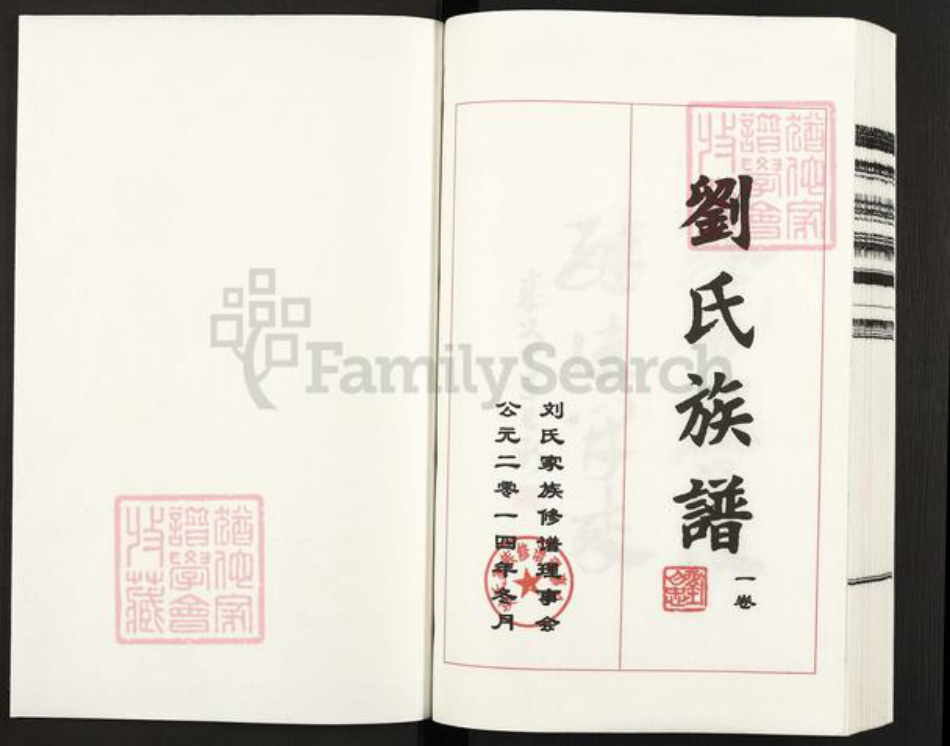 劉氏族譜
一卷
刘氏家族修谱理事会
公元二零一四年冬月
FamilySearch